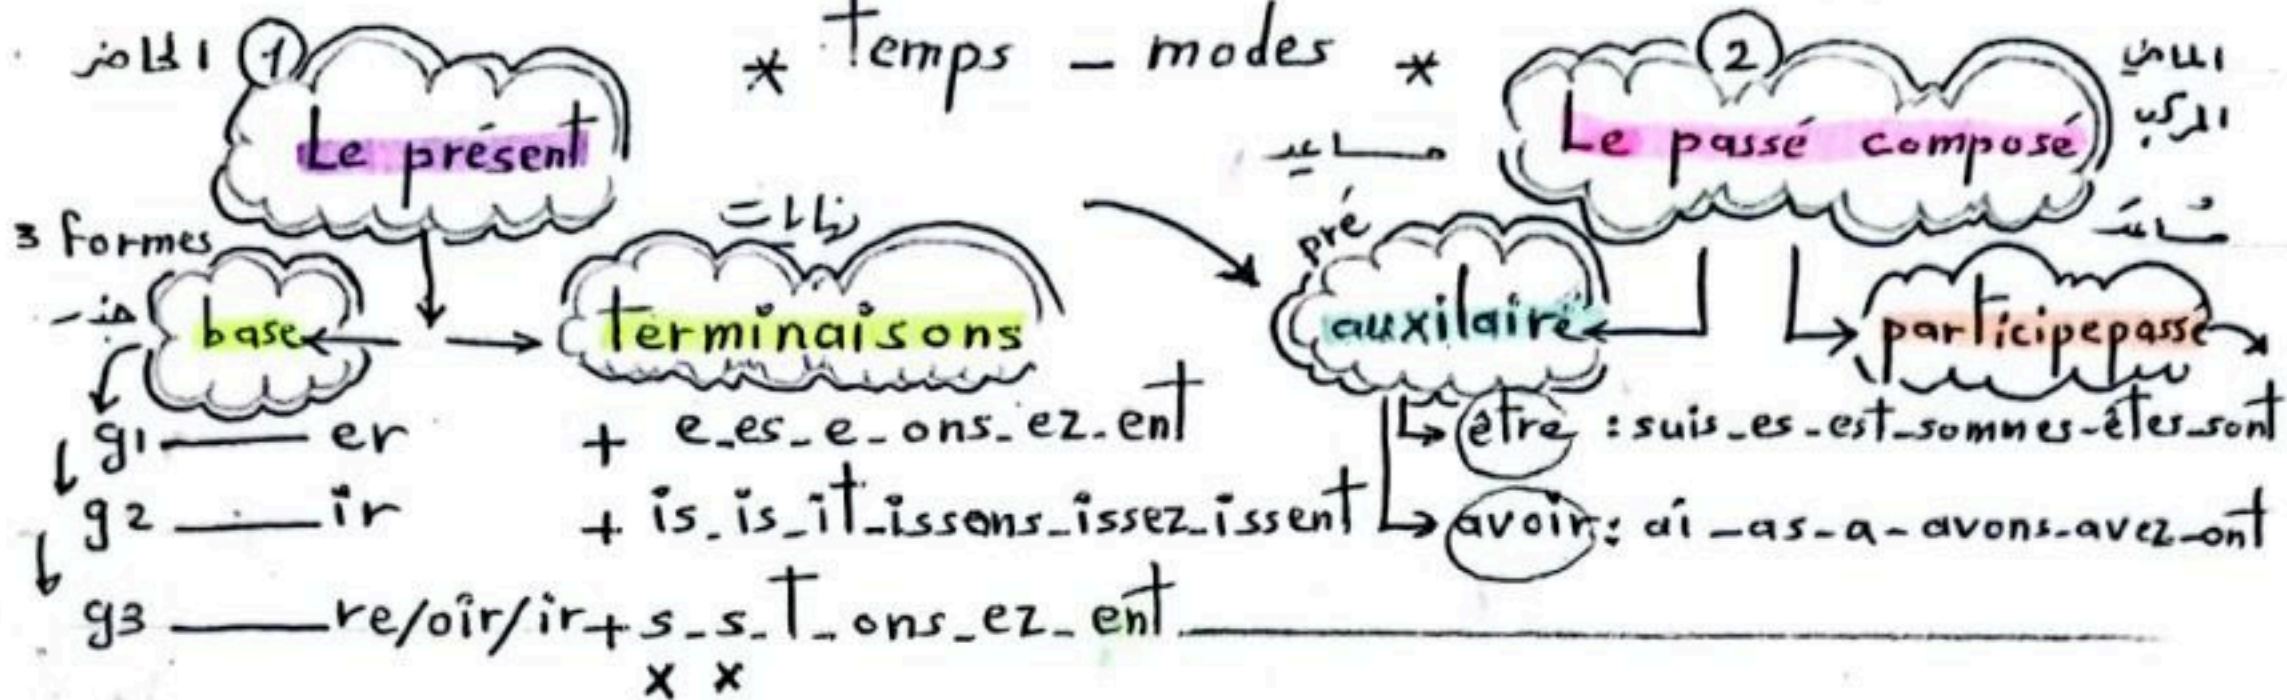 * Temps - modes *
الحاضر
1
Le présent
2
Le passé composé
الماضي
المركب
مساعد
3 formes
base
terminaisons
pré
auxilaire
participe passé
g1 ——— er + e_es_e_ons_ez_ent
g2 ——— ir + is_is_it_issons_issez_issent
g3 ——— re/oir/ir + s_s_t_ons_ez_ent
x x
être : suis_es_est_sommes_êtes_sont
avoir : ai_as_a_avons_avez_ont